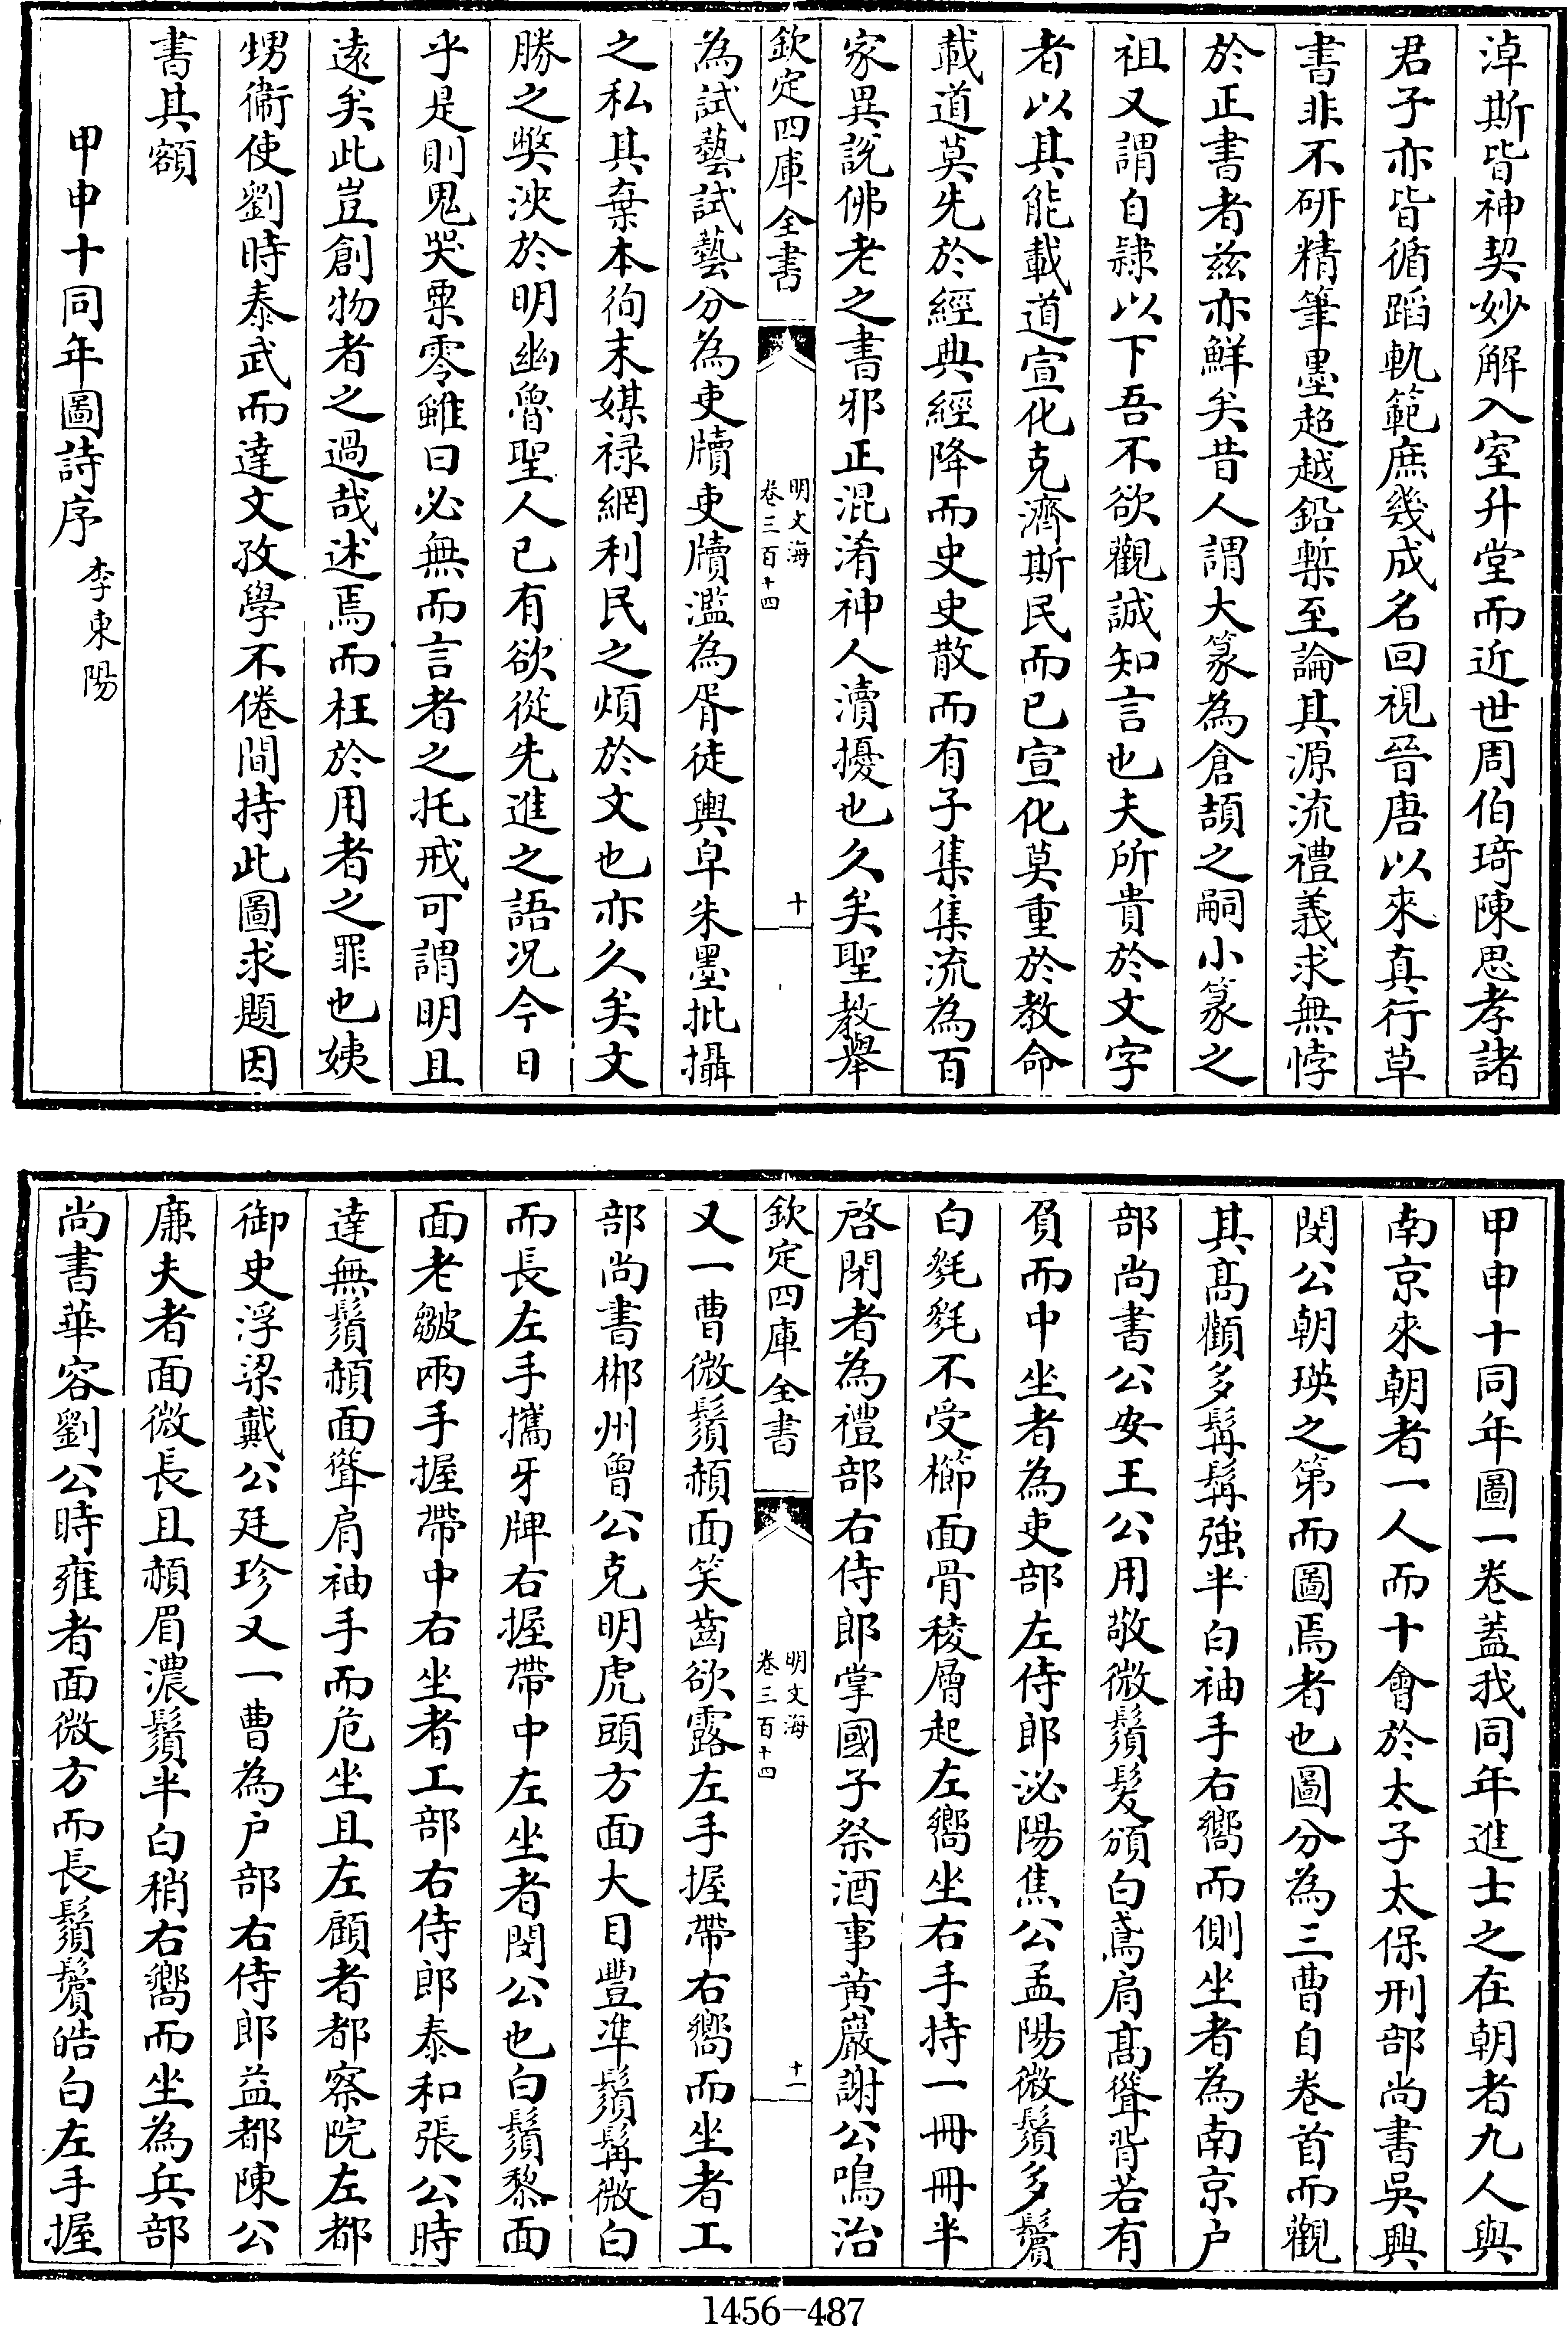 淖斯皆神契妙解入室升堂而近世周伯琦陳思孝諸
君子亦皆循蹈軌範庶幾成名回視晉唐以來真行草
書非不研精筆墨超越鉛槧至論其源流禮義求無悖
於正書者兹亦鮮矣昔人謂大篆為倉頡之嗣小篆之
祖又謂自隷以下吾不欲觀誠知言也夫所貴於文字
者以其能載道宣化克濟斯民而已宣化莫重於教命
載道莫先於經典經降而史史散而有子集集流為百
家異說佛老之書邪正混淆神人瀆擾也久矣聖教舉
欽定四庫全書
明文海
卷三百十四
十
為試藝試藝分為吏牘吏牘濫為胥徒輿皁朱墨批攝
之私其棄本徇末媒禄網利民之煩於文也亦久矣文
勝之獘浹於明幽魯聖人已有欲從先進之語况今日
乎是則鬼哭粟零雖曰必無而言者之托戒可謂明且
遠矣此豈創物者之過哉述焉而枉於用者之罪也姨
甥衞使劉時泰武而達文孜學不倦間持此圖求題因
書其額
甲申十同年圖詩序 李東陽
甲申十同年圖一卷蓋我同年進士之在朝者九人與
南京來朝者一人而十會於太子太保刑部尚書吳興
閔公朝瑛之第而圖焉者也圖分為三曹自卷首而觀
其髙顴多髯髯強半白袖手右嚮而側坐者為南京户
部尚書公安王公用敬微鬚髮頒白鳶肩髙聳背若有
負而中坐者為吏部左侍郎泌陽焦公孟陽微鬚多鬢
白毿毿不受櫛面骨稜層起左嚮坐右手持一冊冊半
啓閉者為禮部右侍郎掌國子祭酒事黄巖謝公鳴治
欽定四庫全書
明文海
卷三百十四
十一
又一曹微鬚頳面笑齒欲露左手握帶右嚮而坐者工
部尚書郴州曾公克明虎頭方面大目豐準鬚髯微白
而長左手攜牙牌右握帶中左坐者閔公也白鬚黎面
面老皺兩手握帶中右坐者工部右侍郎泰和張公時
達無鬚頳面聳肩袖手而危坐且左顧者都察院左都
御史浮梁戴公廷珍又一曹為户部右侍郎益都陳公
廉夫者面微長且頳眉濃鬚半白稍右嚮而坐為兵部
尚書華容劉公時雍者面微方而長鬚鬢皓白左手握
1456-487